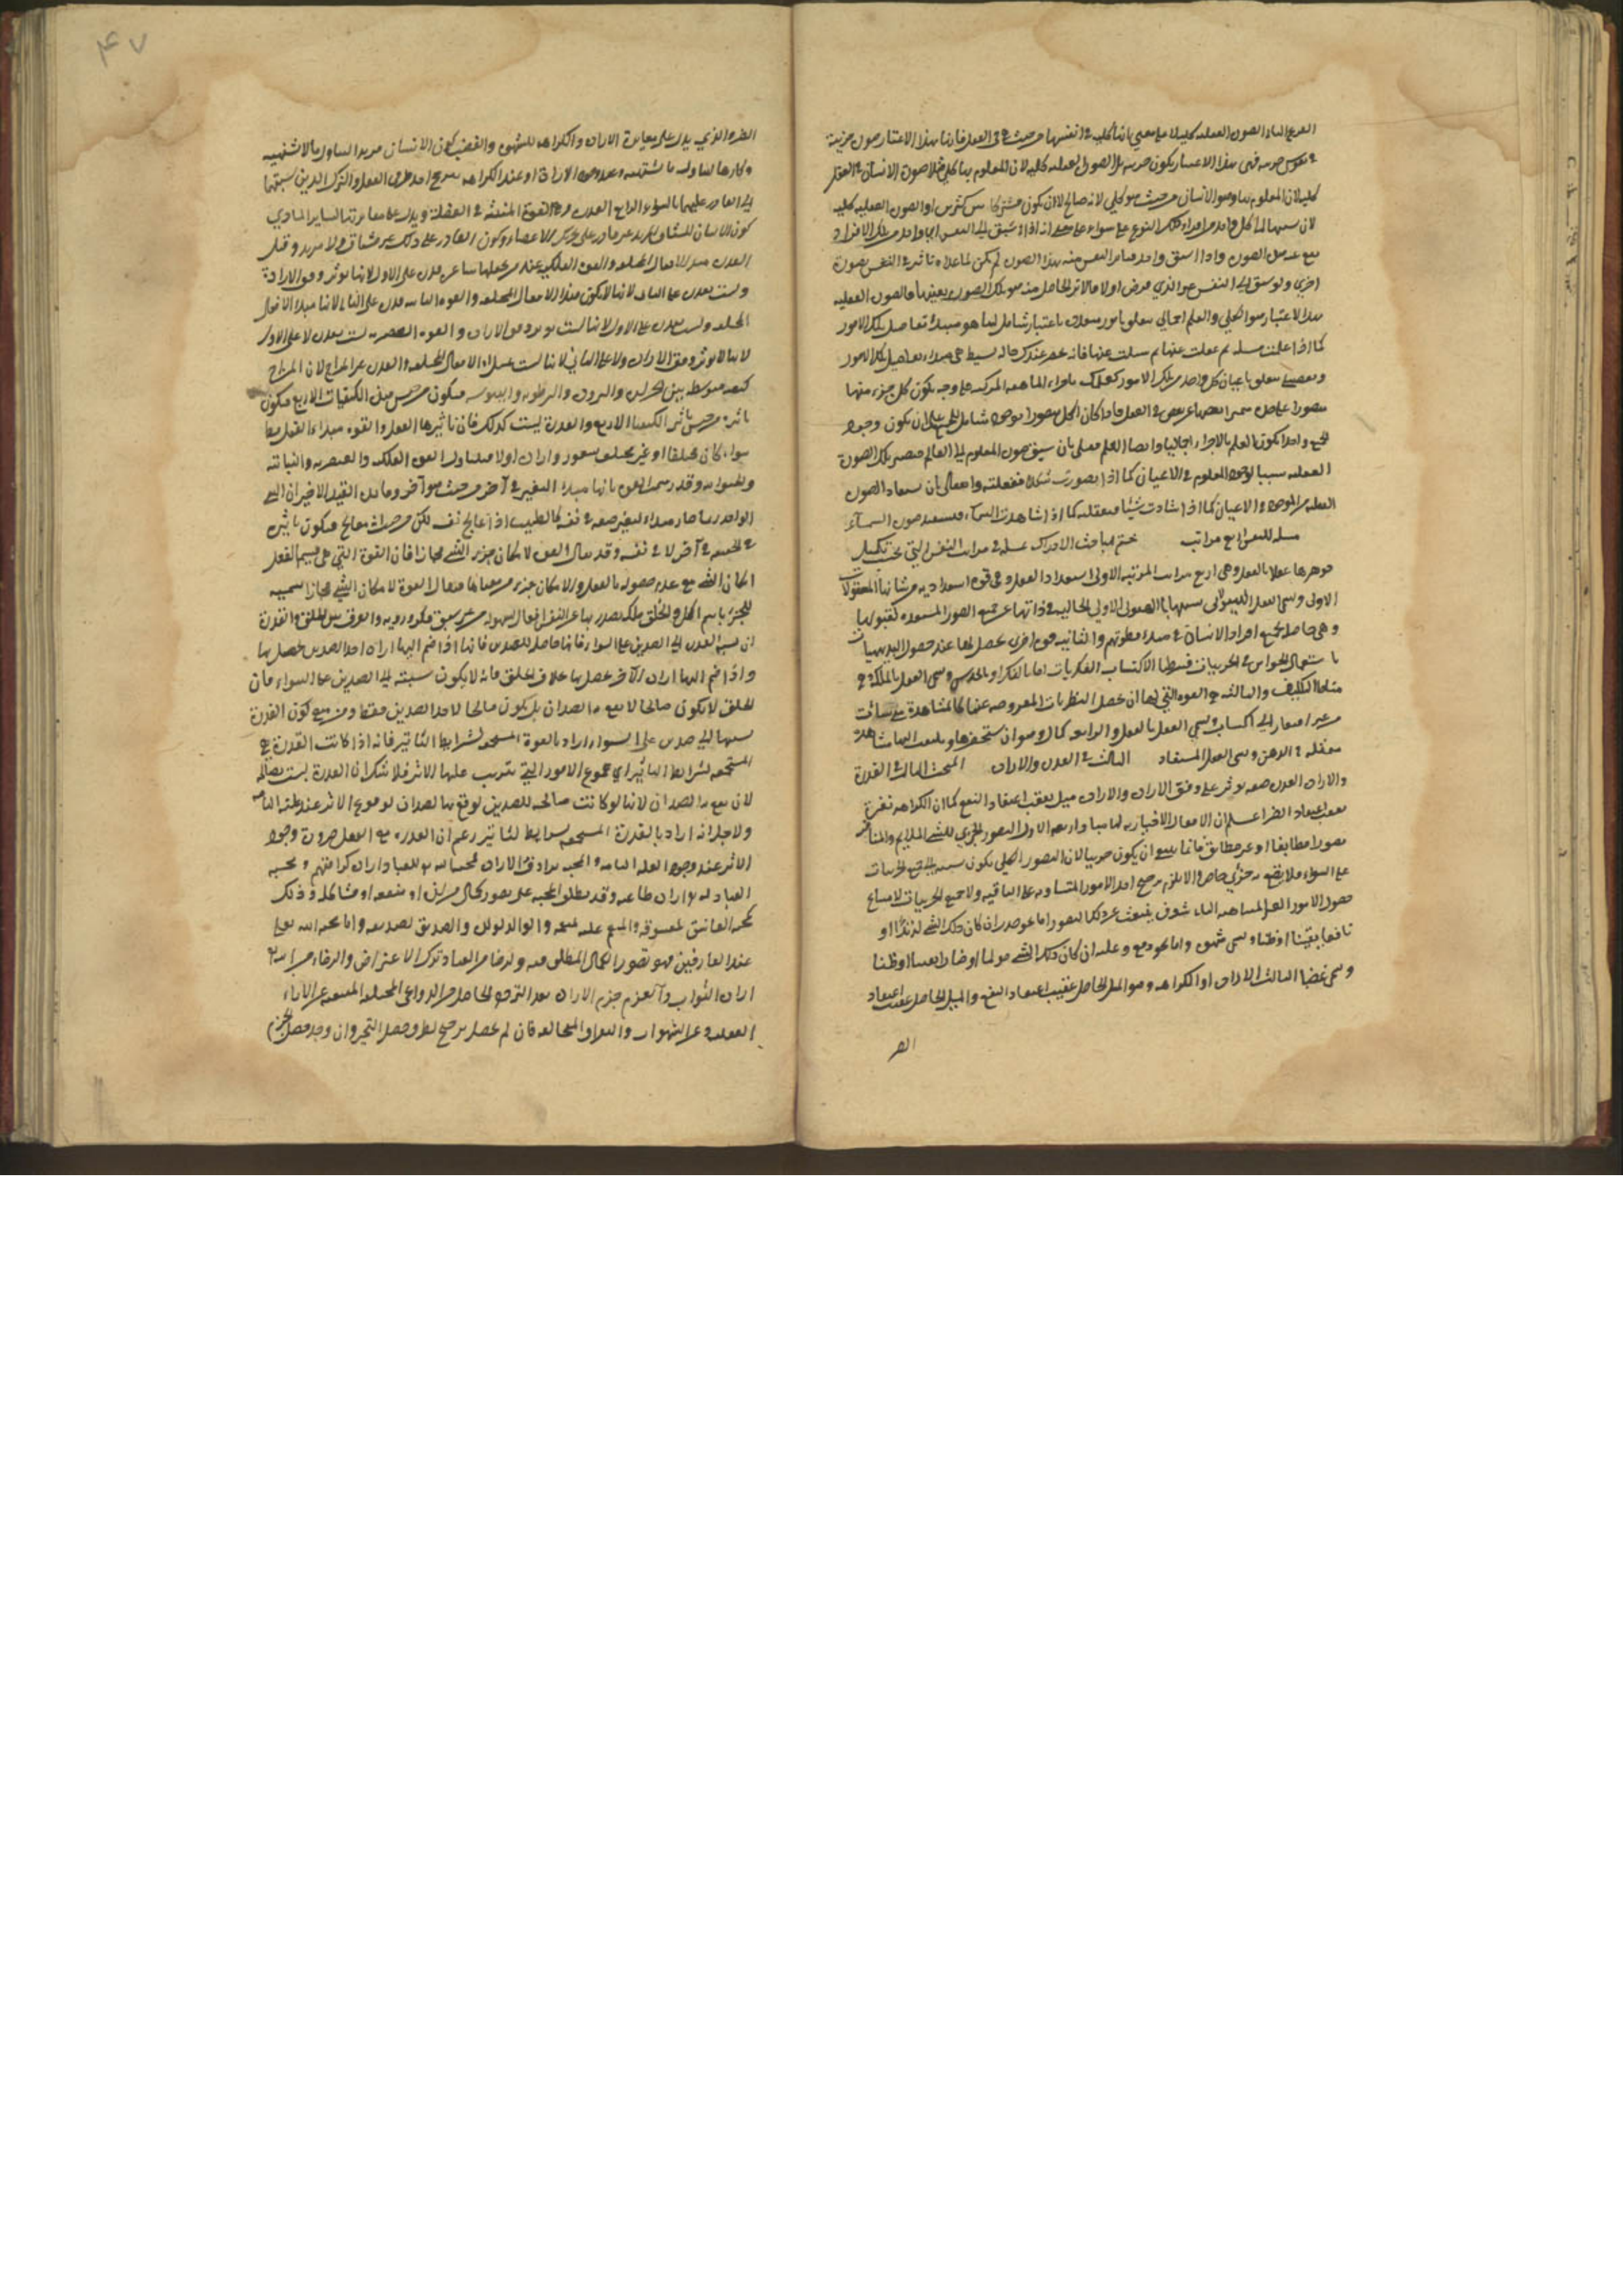 الفرع الثاني الصورة العقلية كلية لا على معنى انها كلية في انفسها من حيث هي في العقل فانها بهذا الاعتبار صورة جزئية
في نفس جزئية فهي بهذا الاعتبار يكون جزئية بل الصورة العقلية كلية لان المعلوم بها كلي مثلا صورة الانسان في العقل
كلية لان المعلوم بها وهو الانسان من حيث هو كلي لانه صالح لان يكون مشتركا بين كثيرين او الصورة العقلية كلية
لان نسبتها الى كل واحد من افراد ذلك النوع على سواء
اخرى ولو سبق الى النفس غير الذي فرض اولا كان الاثر الحاصل منه هو تلك الصورة بعينها فالصورة العقلية
بهذا الاعتبار هو الكلي والعلم اجمالي متعلق بامور متعددة باعتبار شامل لها هو مبدأ تفاصيل تلك الامور
كما اذا علمت مسئلة ثم غفلت عنها ثم سئلت عنها فانه يحضر عندك حالة بسيطة هي مبداء تفاصيل تلك الامور
وتفصيلي متعلق باعيان كل واحد من تلك الامور كعلمك باجزاء الماهية المركبة على وجه يكون كل جزء منها
العقلية سببا لوجود المعلوم في الاعيان كما اذا تصورت شكلا ففعلته وانفعالي بان يستفاد الصورة
العقلية من الموجود في الاعيان كما اذا شاهدت شيئا فتعقلته كما اذا شاهدت السماء فتستفيد صورة السماء
مسئلة للنفس اربع مراتب ختم مباحث الادراك بمسئلة في مراتب النفس التي بحسب تكميل
جوهرها عقلا بالفعل وهي اربع مراتب المرتبة الاولى استعداد العقل وهي قوة استعدادية من شانها المعقولات
الاولى وتسمى العقل الهيولاني تشبيها بالهيولى الاولى الخالية في ذاتها عن جميع الصور المستعدة لقبولها
وهي حاصلة لجميع افراد الانسان في مبداء فطرتهم والثانية قوة اخرى تحصل لها عند حصول البديهيات
باستعمال الحواس في الجزئيات فيتهيأ لاكتساب الفكريات اما بالفكر او بالحدس وتسمى العقل بالملكة وهي
مناط التكليف والثالثة هي القوة التي لها ان تحصل النظريات المفروغ عنها كالمشاهدة متى شاءت
من غير افتقار الى اكتساب وتسمى العقل بالفعل والرابعة كمال وهو ان تستحضرها وتلتفت اليها مشاهدة
متمثلة في الذهن وتسمى العقل المستفاد الثالث في القدرة والارادة المبحث الثالث في القدرة
والارادة القدرة صفة تؤثر على وفق الارادة والارادة ميل يعقب اعتقاد النفع كما ان الكراهة نفرة
تعقب اعتقاد الضر اعلم ان الافعال الاختيارية لها مباد اربعة الاول التصور الجزئي للشيء الملايم والمنافر
تصورا مطابقا او غير مطابق فانما ينبغي ان يكون جزئيا لان التصور الكلي يكون نسبته الى جميع الجزئيات
على السواء فلا يقع به جزئي خاص والا يلزم ترجيح احد الامور المتساوية على الباقية ولا جميع الجزئيات لامتناع
حصول الامور الغير المتناهية الثاني شوق ينبعث عن ذلك التصور اما نحو جذب ان كان ذلك الشيء لذيذا او
نافعا يقينا او ظنا ويسمى شهوة واما نحو دفع وغلبة ان كان ذلك الشيء مؤلما او ضارا يقينا او ظنا
ويسمى غضبا الثالث الارادة او الكراهة وهو الميل الحاصل عقيب اعتقاد النفع والميل الحاصل عقيب اعتقاد
الضر
۴۷
الضر والذي يدل على مغايرة الارادة والكراهة للشهوة والغضب كون الانسان مريدا لتناول ما لا يشتهيه
وكارها لتناول ما يشتهيه وعند وجود الارادة او عند الكراهة يترجح احد طرفي الفعل والترك الذين نسبتهما
الى القادر عليهما بالسواء الرابع القدرة وهي القوة المنبثة في العضلة ويدل على مغايرتها لساير المبادي
كون الانسان المشتاق المريد غير قادر على تحريك الاعضاء وكون القادر على ذلك غير مشتاق ولا مريد وقيل
القدرة مبدأ الافعال المختلفة والقوة الفلكية عند من يجعلها شاعرة قدرة على الاول لانها تؤثر وفق الارادة
وليست بقدرة على الثاني لانها لا يكون مبدأ الافعال المختلفة والقوة النباتية قدرة على الثاني لانها مبدأ الافعال
المختلفة وليست بقدرة على الاول لانها ليست تؤثر وفق الارادة والقوة العنصرية ليست بقدرة لا على الاول
لانها لا تؤثر وفق الارادة ولا على الثاني لانها ليست مبدأ الافعال المختلفة والقدرة غير المزاج لان المزاج
كيفية متوسطة بين الحرارة والبرودة والرطوبة واليبوسة فيكون من جنس هذه الكيفيات الاربع فيكون
تاثيره من جنس تاثير الكيفيات الاربع والقدرة ليست كذلك فان تاثيرها الفعل والقوة مبداء الفعل مطلقا
سواء كان مختلفا او غير مختلف بشعور وارادة او لا فيتناول القوة الفلكية والعنصرية والنباتية
والحيوانية وقد رسم القوة بانها مبداء التغير في آخر من حيث هو آخر وفائدة القيد الاخير ان الشيء
الواحد ربما صار مبداء لتغير صفة في نفسه كالطبيب اذا عالج نفسه لكن من حيث معالج فيكون تاثيره
في الحقيقة في آخر لا في نفسه وقد يقال القوة لامكان جزء الشيء مجازا فان القوة التي هي قسيم الفعل
امكان الشيء مع عدم حصوله بالفعل والامكان جزء من معناها فيقال القوة لامكان الشيء مجازا تسمية
للجزء باسم الكل والخلق ملكة تصدر بها عن النفس افعال بسهولة من غير سبق فكر وروية والفرق بين الخلق والقدرة
ان نسبة القدرة الى الضدين على السواء فانها حاصلة للضدين فانها اذا ضم اليها ارادة احد الضدين حصل بها
واذا ضم اليها ارادة الآخر حصل بها بخلاف الخلق فانه لا يكون نسبته الى الضدين على السواء فان
الخلق لا يكون صالحا لا يقع به الضدان بل يكون صالحا لاحد الضدين فقط ومن منع كون القدرة
نسبتها الى ضدين على السواء اراد بالقوة المستجمعة لشرايط التاثير فانه اذا كانت القدرة هي
المستجمعة لشرايط التاثير اي مجموع الامور التي يترتب عليها الاثر فلا شك ان القدرة ليست صالحة
لان يقع بها الضدان لانها لو كانت صالحة للضدين لوقع بها الضدان لوقوع الاثر عند علته التامة
ولاجل انه اراد بالقدرة المستجمعة لشرايط التاثير زعم ان القدرة مع الفعل ضرورة وجود
الاثر عند وجود العلة التامة والمحبة مرادفة الارادة فمحبة الله للعباد ارادة كرامتهم ومحبة
العباد لله ارادة طاعته وقد يطلق المحبة على تصور كمال من لذة او منفعة او مشاكلة وذلك
كمحبة العاشق لمعشوقه والمنعم عليه لمنعمه والوالد لولده والصديق لصديقه واما محبة الله تعالى
عند العارفين فهو تصور الكمال المطلق فيه والرضا من العباد ترك الاعتراض والرضاء من الله
ارادة الثواب والعزم جزم الارادة بعد التردد الحاصل من الدواعي المختلفة المنبعثة عن الآراء
العقلية وعن الشهوات والنفرات المتخالفة فان لم يحصل ترجيح لطرف حصل التحير وان وجد حصل العزم